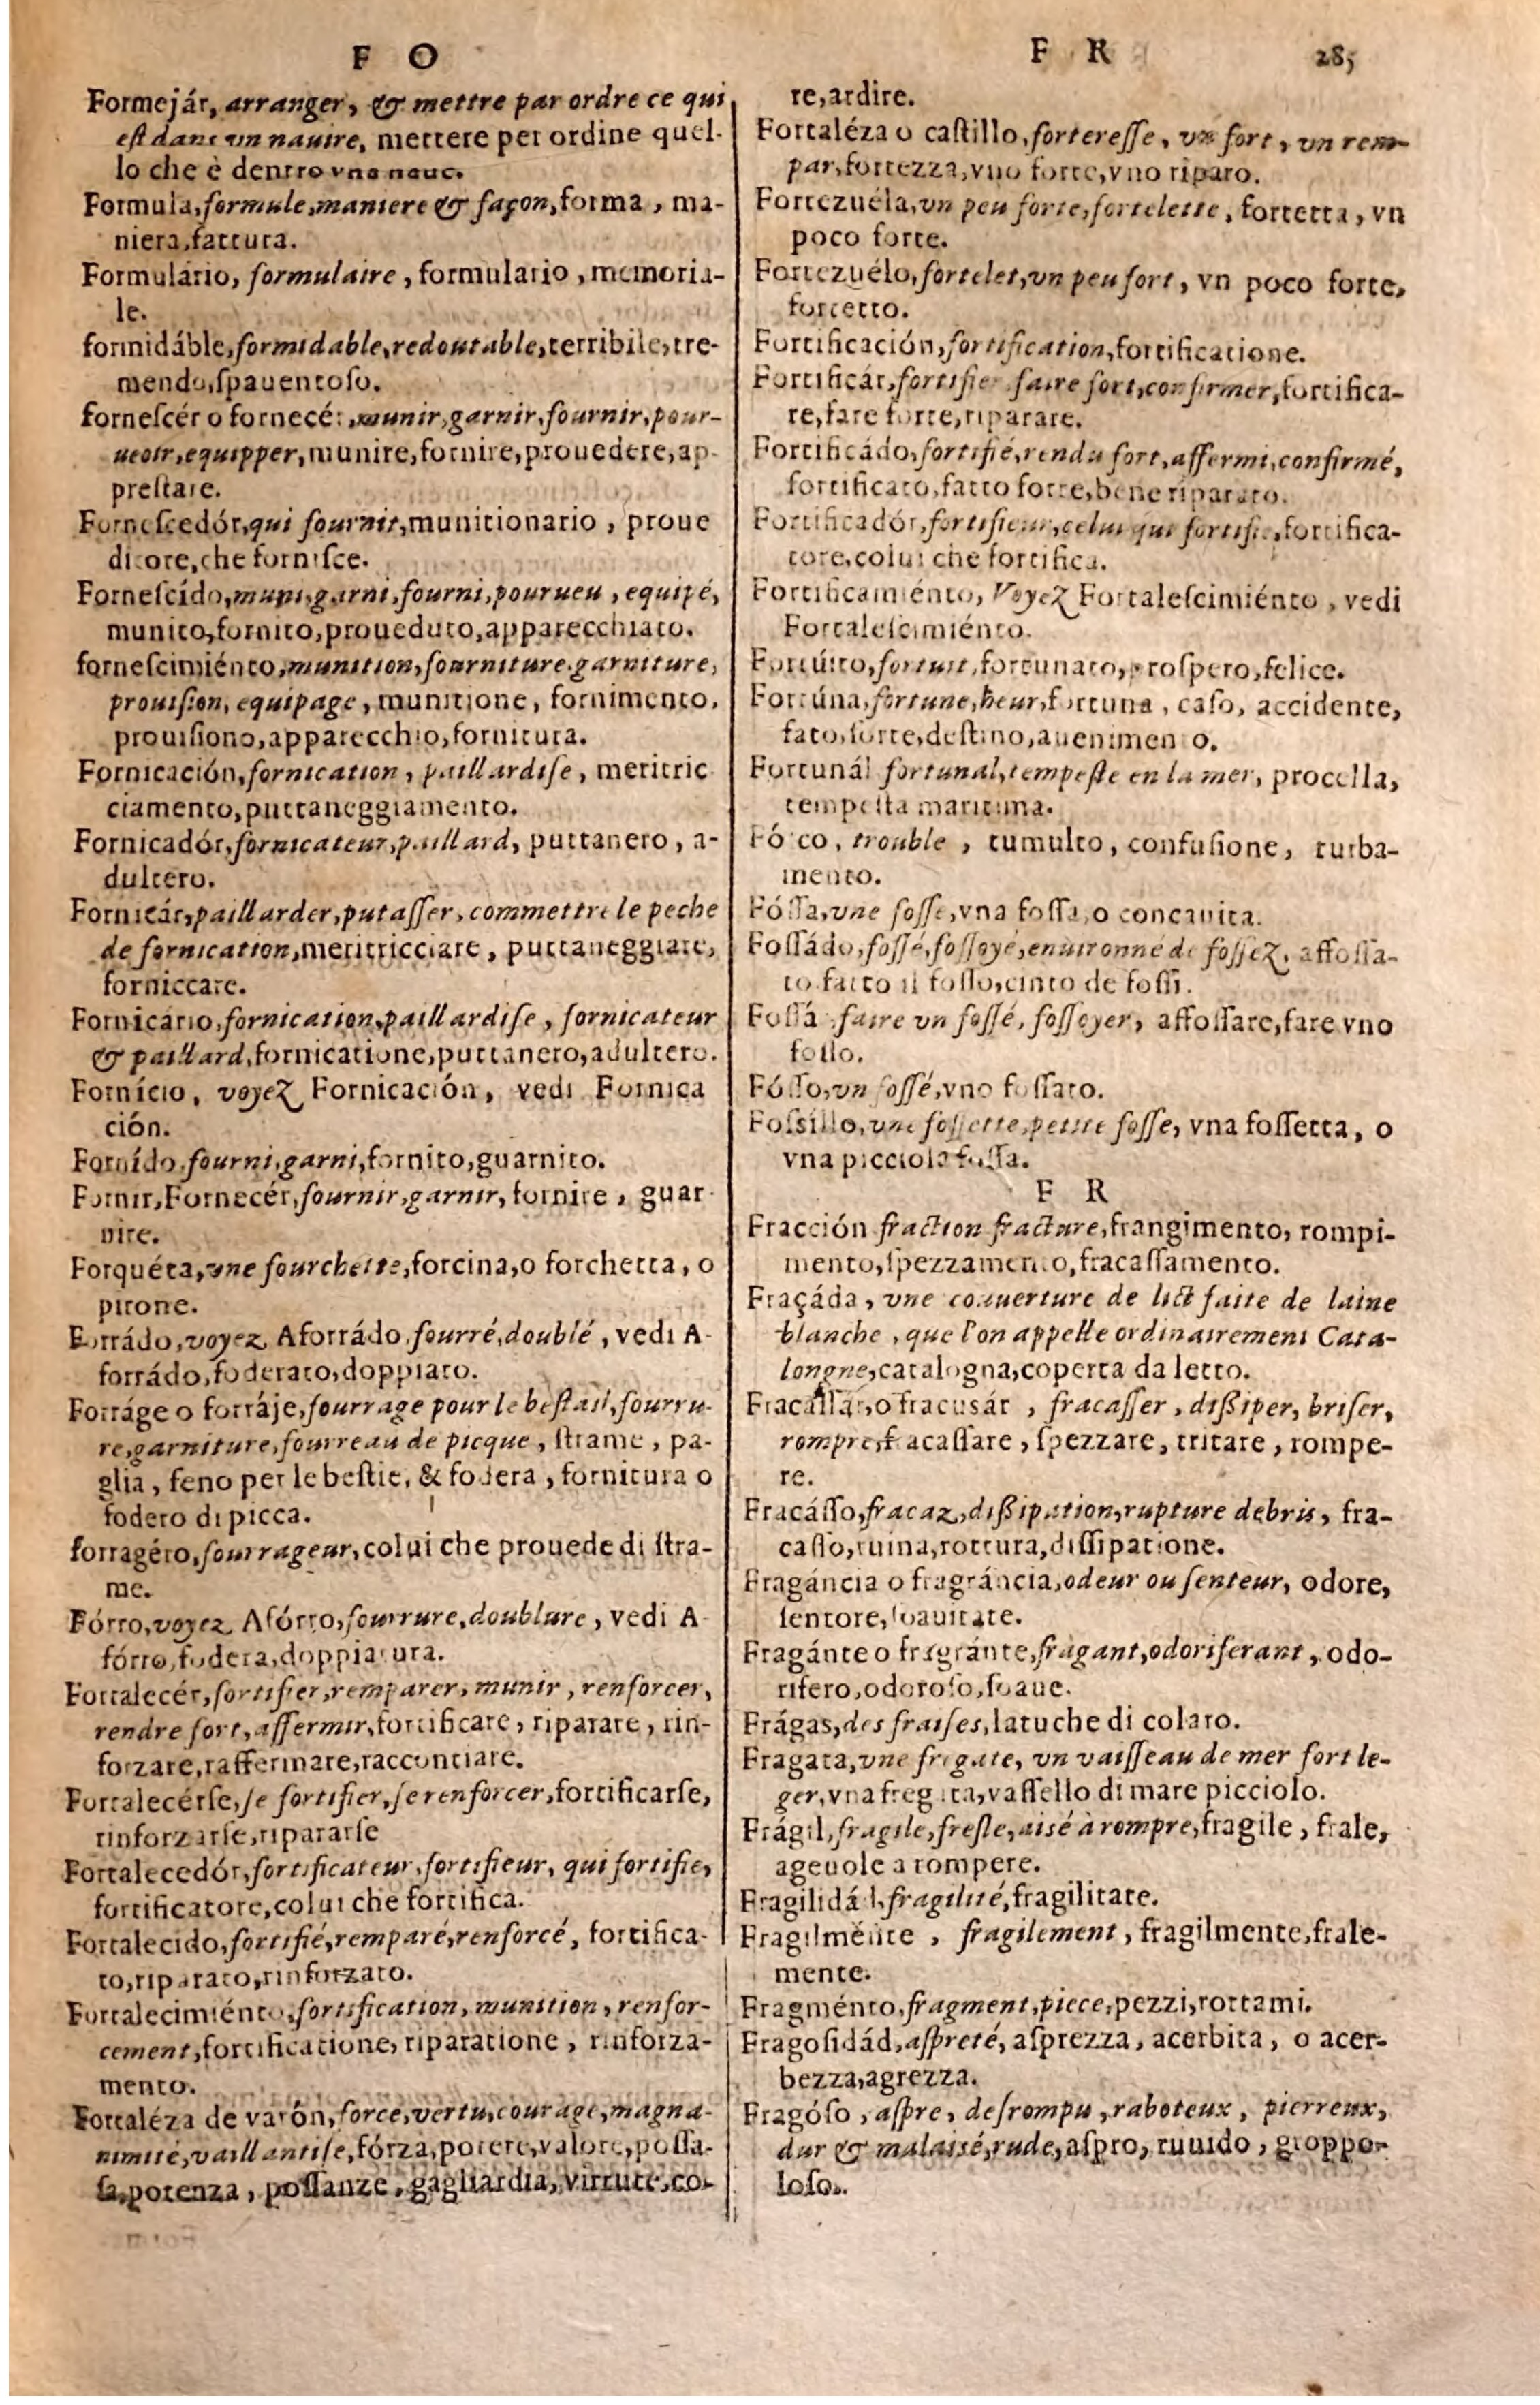 F O
Formejár, arranger, & mettre par ordre ce qui
est dans vn nauire, mettere per ordine quel-
lo che è dentro vna naue.
Formula, formule, maniere & façon, forma, ma-
niera, fattura.
Formulário, formulaire, formulario, memoria-
le.
formidáble, formidable, redoutable, terribile, tre-
mendo, spauentoso.
fornescér o fornecér, munir, garnir, fournir, pour-
ueoir, equipper, munire, fornire, prouedere, ap-
prestare.
Fornescedór, qui fournit, munitionario, proue
ditore, che fornisce.
Fornescído, muni, garni, fourni, pourueu, equipé,
munito, fornito, proueduto, apparecchiato.
fornescimiénto, munition, fourniture, garniture,
prouision, equipage, munitione, fornimento,
prouisiono, apparecchio, fornitura.
Fornicación, fornication, paillardise, meritric
ciamento, puttaneggiamento.
Fornicadór, fornicateur, paillard, puttanero, a-
dultero.
Fornicár, paillarder, putasser, commettre le peche
de fornication, meritricciare, puttaneggiare,
forniccare.
Fornicário, fornication, paillardise, fornicateur
& paillard, fornicatione, puttanero, adultero.
Fornício, voyez Fornicación, vedi Fornica
ción.
Forníđo, fourni, garni, fornito, guarnito.
Fornir, Fornecér, fournir, garnir, fornire, guar
nire.
Forquéta, vne fourchette, forcina, o forchetta, o
pirone.
Forrádo, voyez Aforrádo, fourré, doublé, vedi A-
forrádo, foderato, doppiato.
Forráge o forráje, fourrage pour le bestail, fourru-
re, garniture, fourreau de picque, strame, pa-
glia, feno per le bestie, & fodera, fornitura o
fodero di picca.
forragéro, fourrageur, colui che prouede di stra-
me.
Fórro, voyez Afórro, fourrure, doublure, vedi A-
fórro, fodera, doppiatura.
Fortalecér, fortifier, remparer, munir, renforcer,
rendre fort, affermir, fortificare, riparare, rin-
forzare, raffermare, racconciare.
Fortalecérse, se fortifier, se renforcer, fortificarse,
rinforzarse, ripararse
Fortalecedór, fortificateur, fortifieur, qui fortifie,
fortificatore, colui che fortifica.
Fortalecido, fortifié, remparé, renforcé, fortifica-
to, riparato, rinforzato.
Fortalecimiénto, fortification, munition, renfor-
cement, fortificatione, riparatione, rinforza-
mento.
Fortaléza de varón, force, vertu, courage, magna-
nimité, vaillantise, fórza, potere, valore, possa-
sa, potenza, possanze, gagliardia, virtute, co-
F R 285
re, ardire.
Fortaléza o castillo, forteresse, vn fort, vn rem-
par, fortezza, vno forte, vno riparo.
Fortezuéla, vn peu forte, fortelette, fortetta, vn
poco forte.
Fortezuélo, fortelet, vn peu fort, vn poco forte,
fortetto.
Fortificación, fortification, fortificatione.
Fortificár, fortifier, faire fort, confirmer, fortifica-
re, fare forte, riparare.
Fortificádo, fortifié, rendu fort, affermi, confirmé,
fortificato, fatto forte, bene riparato.
Fortificadór, fortifieur, celui qui fortifie, fortifica-
tore, colui che fortifica.
Fortificamiénto, Voyez Fortalescimiénto, vedi
Fortalescimiénto.
Fortúito, fortuit, fortunato, prospero, felice.
Fortúna, fortune, heur, fortuna, caso, accidente,
fato, sorte, destino, auenimento.
Fortunál fortunal, tempeste en la mer, procella,
tempesta maritima.
Fórço, trouble, tumulto, confusione, turba-
mento.
Fóssa, vne fosse, vna fossa, o concauita.
Fossádo, fossé, fossoyé, enuironné de fossez, affossa-
to fatto il fosso, cinto de fossi.
Fossár faire vn fossé, fossoyer, affossare, fare vno
fosso.
Fósso, vn fossé, vno fossato.
Fossíllo, vne fossette, petite fosse, vna fossetta, o
vna picciola fossa.
F R
Fracción fraction fracture, frangimento, rompi-
mento, spezzamento, fracassamento.
Fraçáda, vne couuerture de lict faite de laine
blanche, que l'on appelle ordinairement Cata-
longne, catalogna, coperta da letto.
Fracassár, o fracusár, fracasser, dißiper, briser,
rompre, fracassare, spezzare, tritare, rompe-
re.
Fracásso, fracaz, dißipation, rupture debris, fra-
casso, ruina, rottura, dissipatione.
Fragáncia o fragráncia, odeur ou senteur, odore,
sentore, soauitate.
Fragánte o fragránte, fragant, odoriferant, odo-
rifero, odoroso, soaue.
Frágas, des fraises, latuche di colaro.
Fragata, vne fregate, vn vaisseau de mer fort le-
ger, vna fregata, vassello di mare picciolo.
Frágil, fragile, fresle, aisé à rompre, fragile, frale,
ageuole a rompere.
Fragilidád, fragilité, fragilitate.
Fragilménte, fragilement, fragilmente, frale-
mente.
Fragménto, fragment, piece, pezzi, rottami.
Fragosidád, aspreté, asprezza, acerbita, o acer-
bezza, agrezza.
Fragóso, aspre, desrompu, raboteux, pierreux,
dur & malaisé, rude, aspro, ruuido, groppo-
loso.